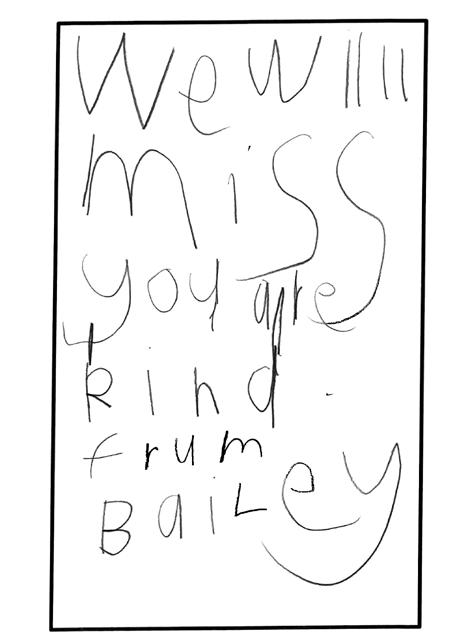 We Will
miss
you are
kind.
frum
BaiLey